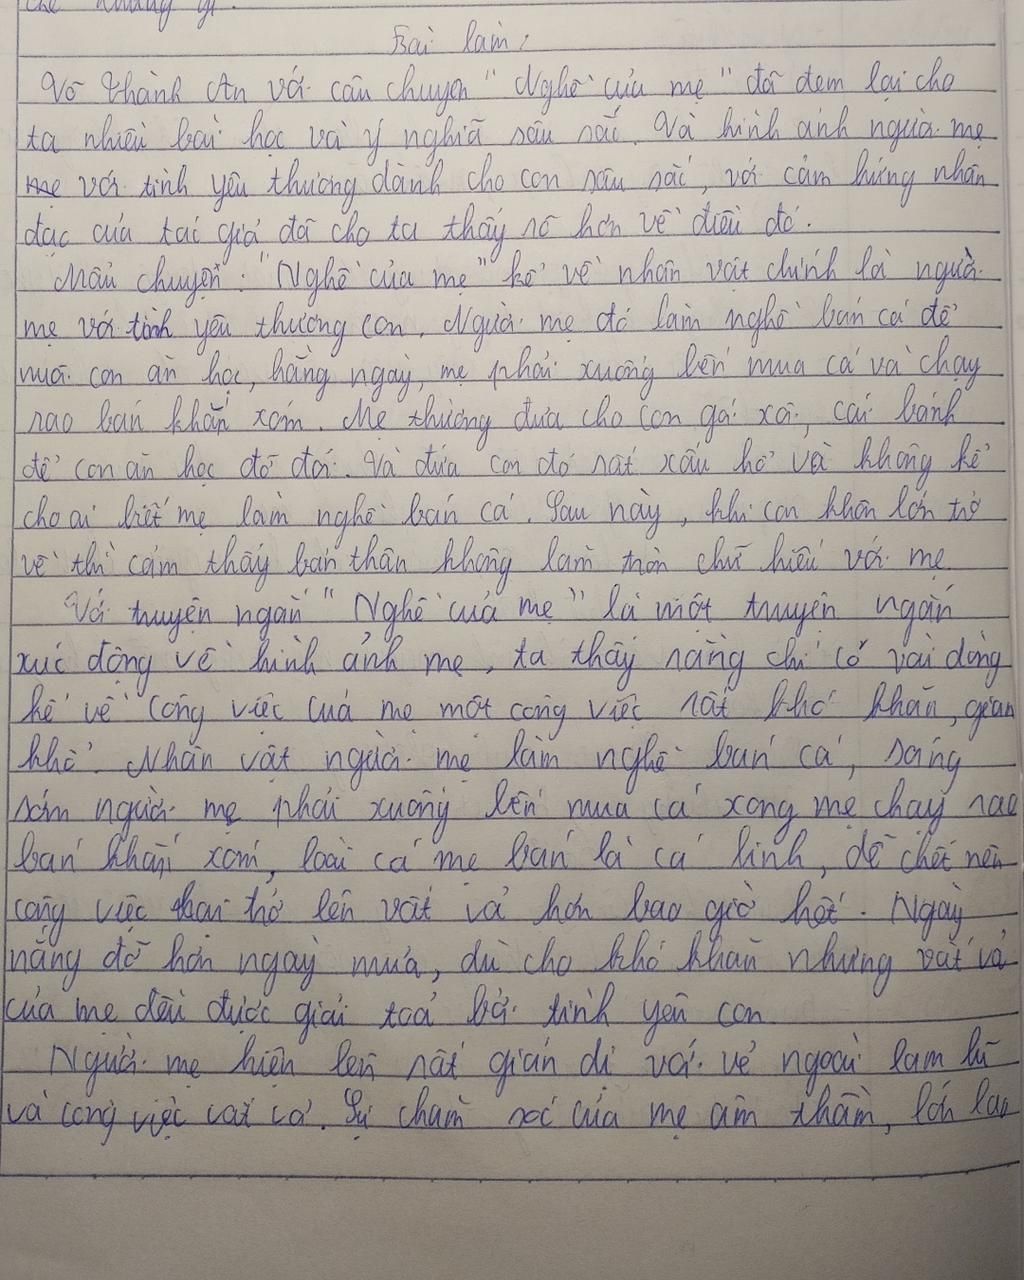 Bài làm:
Võ Thành An với câu chuyện "Nghề của mẹ" đã đem lại cho
ta nhiều bài học và ý nghĩa sâu sắc. Và hình ảnh người mẹ
mẹ với tình yêu thương dành cho con sâu sắc, với cảm hứng nhân
đạc của tác giả đã cho ta thấy rõ hơn về điều đó.
Mẩu chuyện: "Nghề của mẹ" kể về nhân vật chính là người
mẹ với tình yêu thương con. Người mẹ đó làm nghề bán cá để
nuôi con ăn học, hằng ngày, mẹ phải xuống bến mua cá và chạy
rao bán khắp xóm. Mẹ thường đưa cho con gói xôi, cái bánh
để con ăn học đỡ đói. Và đứa con đó rất xấu hổ và không kể
cho ai biết mẹ làm nghề bán cá. Sau này, khi con khôn lớn trở
về thì cảm thấy bản thân không làm tròn chữ hiếu với mẹ.
Với truyện ngắn "Nghề của mẹ" là một truyện ngắn
xúc động về hình ảnh mẹ, ta thấy rằng chỉ có vài dòng
kể về công việc của mẹ một công việc rất khó khăn, gian
khổ. Nhân vật người mẹ làm nghề bán cá, sáng
sớm người mẹ phải xuống bến mua cá xong mẹ chạy rao
bán khắp xóm, loài cá mẹ bán là cá linh, dễ chết nên
công việc trở lên vất vả hơn bao giờ hết. Ngày
nắng đỡ hơn ngày mưa, dù cho khó khăn nhưng vất vả
của mẹ đều được giải toả bởi tình yêu con
Người mẹ hiện lên rất giản dị với vẻ ngoài lam lũ
và công việc vất vả. Sự chăm sóc của mẹ âm thầm, lớn lao